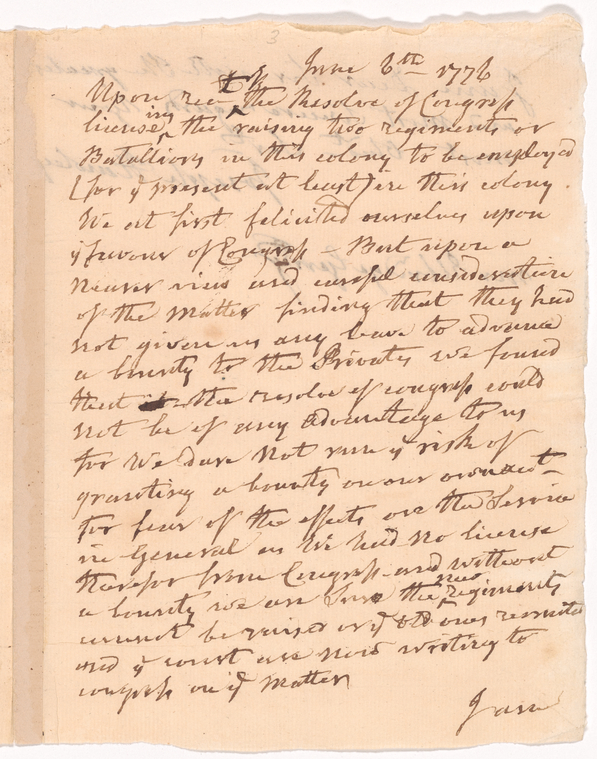 3
June 6th 1776
Upon rect of the Resolve of Congress
licenseing the raising two regiments or
Batallions in this colony to be employed
(for ye present at least) in this colony
We at first felicited ourselves upon
ye favour of Congress - But upon a
nearer view and careful consideration
of the Matter finding that they had
not given us any leave to advance
a bounty to the Privates we found
that the resolve of congress could
not be of any advantage to us
for We dare not run ye risk of
granting a bounty on our own act
for fear of the effects on the Service
in General as We had no license
therefor from Congress and without
a bounty we are Sure the new regiments
cannot be raised or ye old ones recruited
and ye court are now writing to
congress on ye Matter
I am